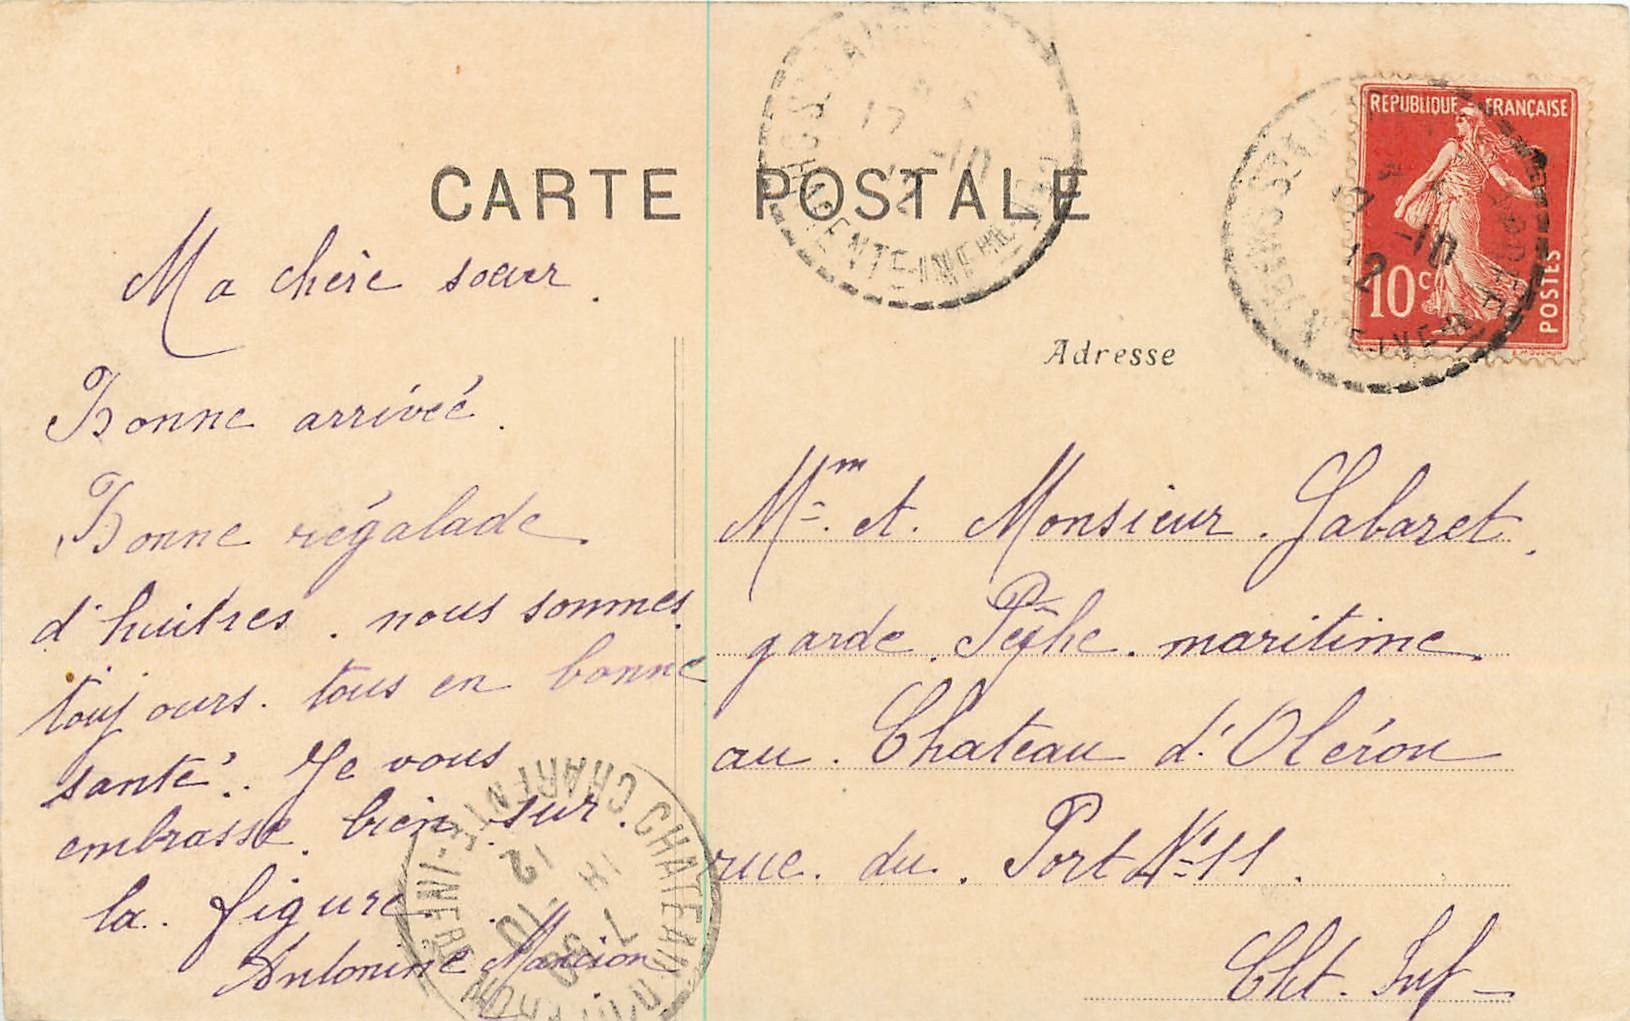 CARTE POSTALE
Ma chère soeur.
Bonne arrivéé.
Bonne régalade
d'huitres. nous sommes
toujours. tous en bonne
santé. Je vous
embrasse. bien. sur.
la. figure.
Antonine Mancion
RÉPUBLIQUE FRANÇAISE
10c
POSTES
17 -10
12
CHARENTE-INFRE
17 -10
12
Adresse
Mme. et. Monsieur. Gabaret.
garde. Pêche. maritime
au. Chateau d'Oléron
rue. du. Port No 11.
Cht. Inf
CHATEAU D'OLERON
CHARENTE-INFRE
7 30
18 -10
12